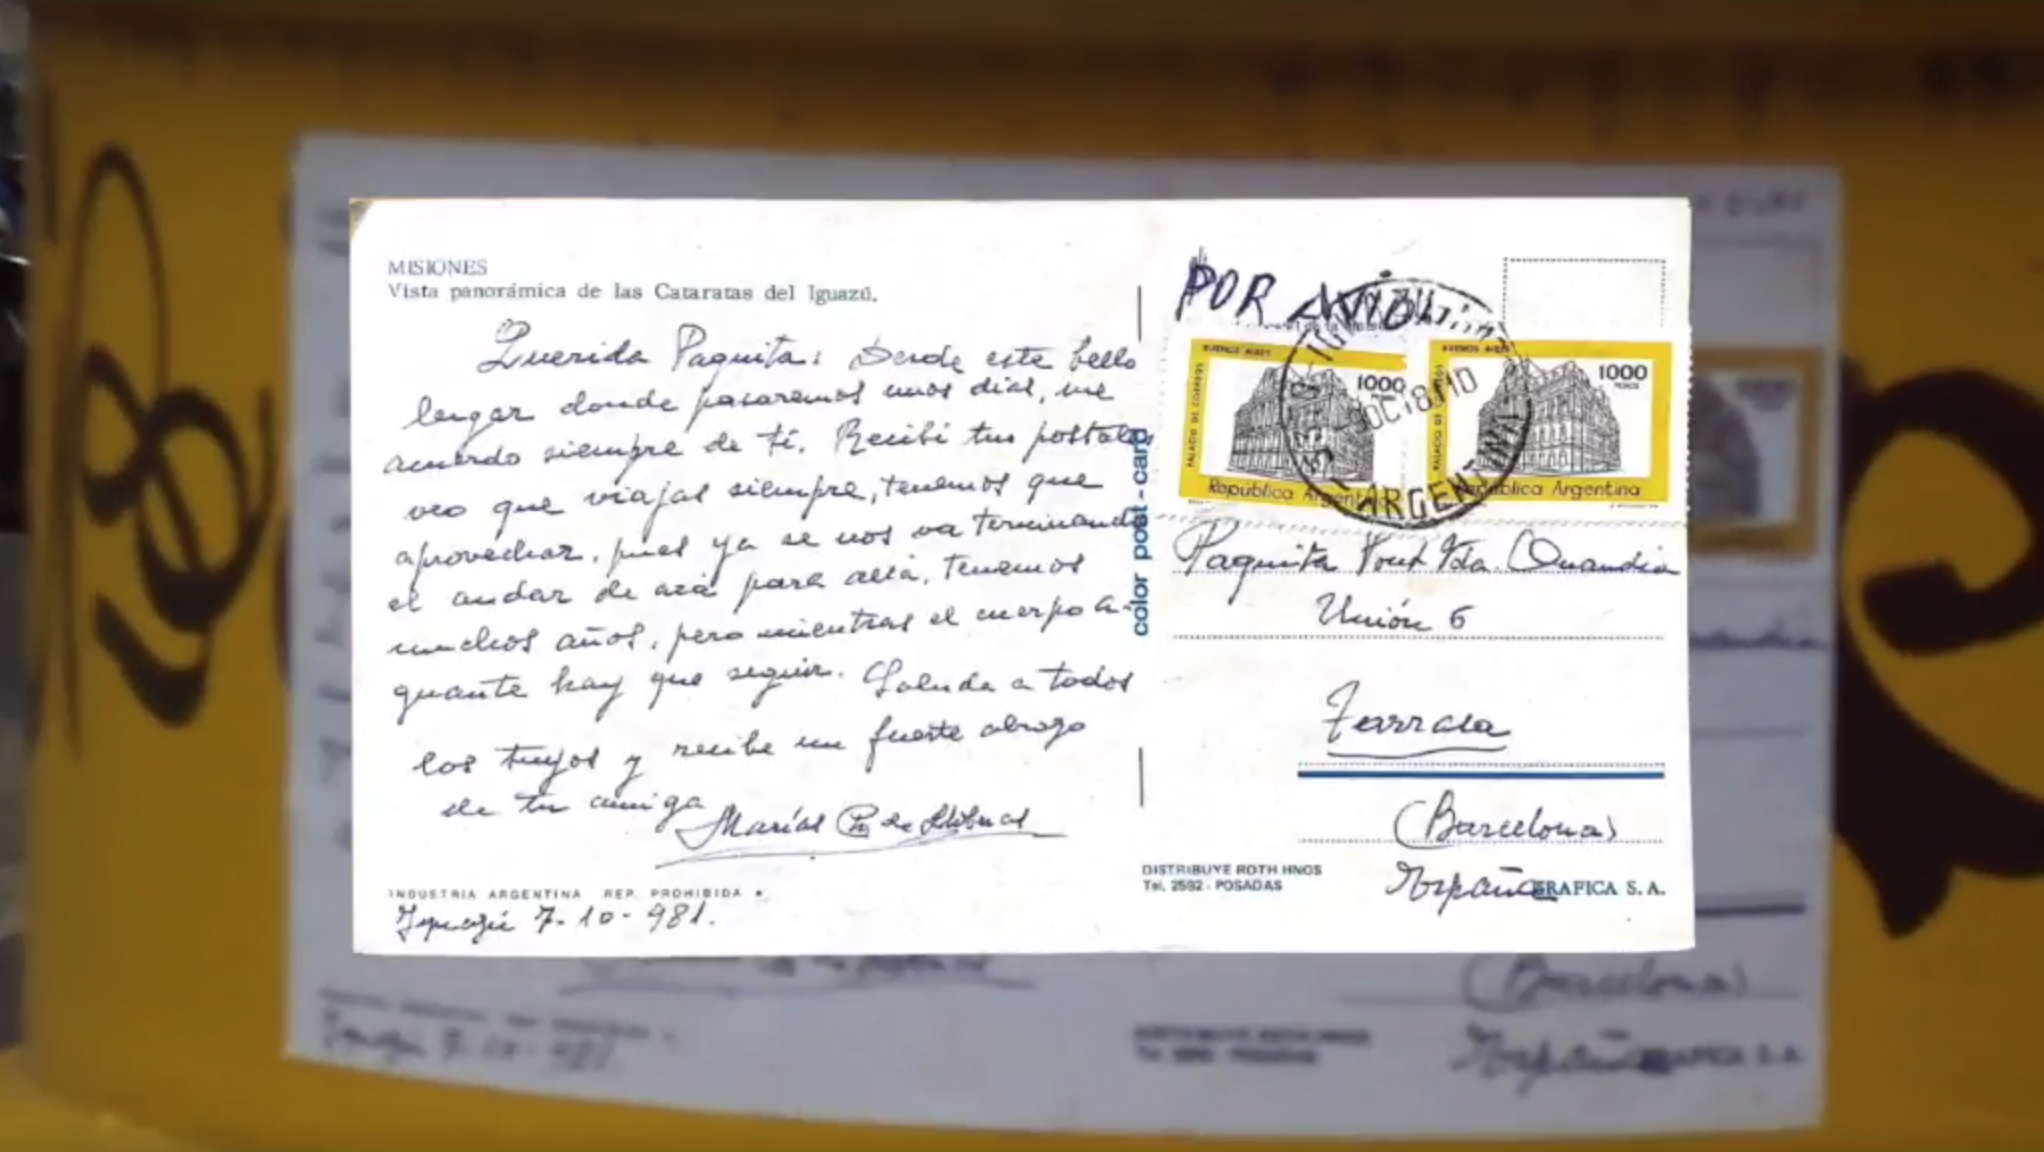 MISIONES
Vista panorámica de las Cataratas del Iguazú.
Querida Paquita: Desde este bello
lugar donde pasaremos unos días, me
acuerdo siempre de tí. Recibí tus postales
veo que viajas siempre, tenemos que
aprovechar, pues ya se nos va terminando
el andar de acá para allá, tenemos
muchos años, pero mientras el cuerpo a-
guante hay que seguir. Saluda a todos
los tuyos y recibe un fuerte abrazo
de tu amiga
Marías de
INDUSTRIA ARGENTINA REP. PROHIBIDA
Iguazú 7-10-981.
color post-card
POR AVIÓN
BUENOS AIRES
PALACIO DE CORREOS
1000
República Argentina
BUENOS AIRES
PALACIO DE CORREOS
1000
PESOS
República Argentina
OCT 81 10
ARGENTINA
Paquita Font Vda.
Unión 6
Tarrasa
(Barcelona)
España
GRAFICA S. A.
DISTRIBUYE ROTH HNOS
Tel. 2592 - POSADAS